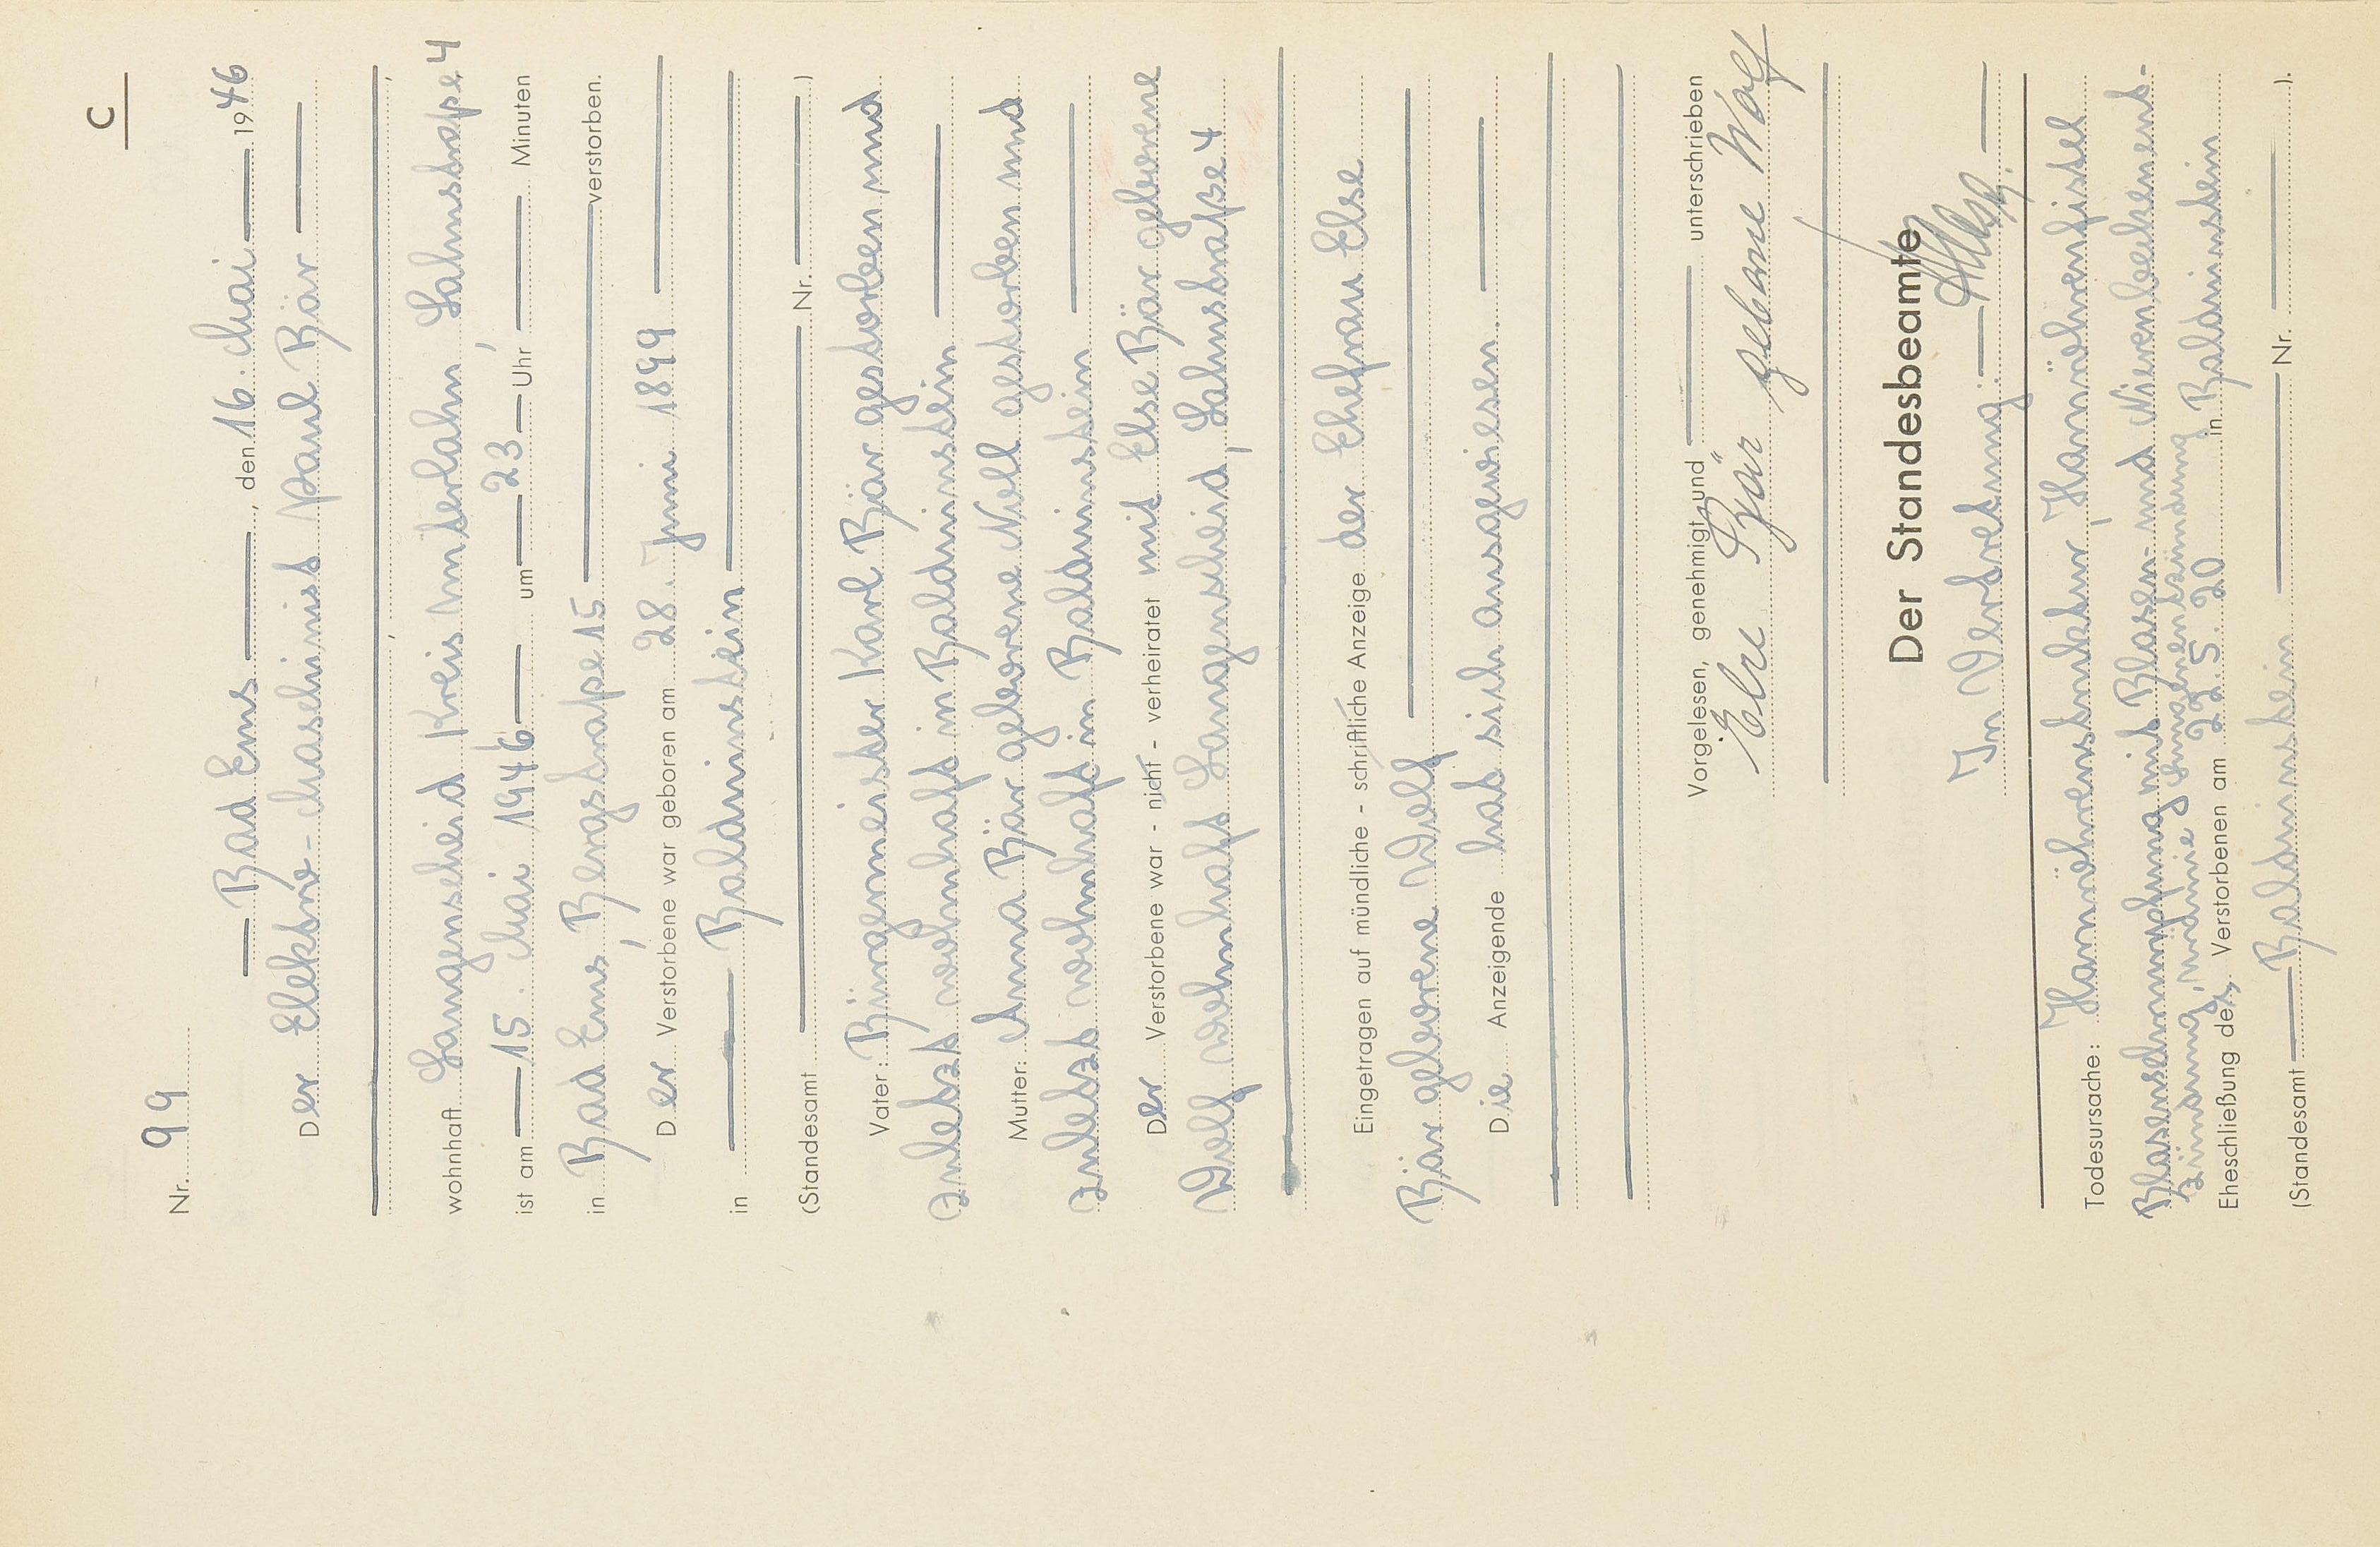 C
Nr. 99
Bad Ems, den 16. Mai 1946
Der Elektro-Maschinist Paul Bjär
wohnhaft Langenscheid Kreis Unterlahn, Lahnstraße 4
ist am 15. Mai 1946 um 23 Uhr Minuten
in Bad Ems, Bergstraße 15 verstorben.
Der Verstorbene war geboren am 28. Juni 1899
in Balduinstein
(Standesamt Nr. )
Vater: Bürgermeister Karl Bjär gestorben und
zuletzt wohnhaft in Balduinstein
Mutter: Anna Bjär geborene Noll gestorben und
zuletzt wohnhaft in Balduinstein
Der Verstorbene war - nicht - verheiratet mit Else Bjär geborene
Wolf wohnhaft Langenscheid, Lahnstraße 4
Eingetragen auf mündliche - schriftliche Anzeige der Ehefrau Else
Bjär geborene Wolf
Die Anzeigende hat sich ausgewiesen.
Vorgelesen, genehmigt und unterschrieben
Else Bjär geborne Wolf
Der Standesbeamte
In Vertretung:
Todesursache: Harnröhrenstruktur, Harnröhrenfistel
Blasenschrumpfung mit Blasen- und Nierenbeckenent-
zündung, Urämie Lungenentzündung
Eheschließung des Verstorbenen am 22.5.20 in Balduinstein
(Standesamt Balduinstein Nr. ).